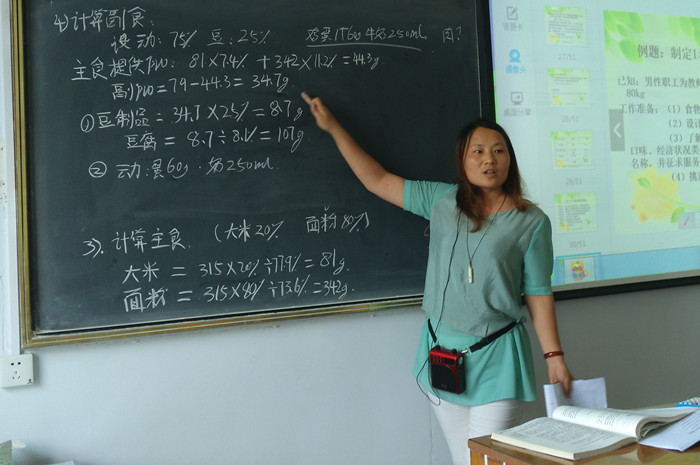 4) 计算副食:
设动: 75% 豆: 25%
主食提供Pro: 81×7.4% + 342×11.2% = 44.3g
副Pro = 79-44.3 = 34.7g
① 豆制品 = 34.7×25% = 8.7g
豆腐 = 8.7÷8.1% = 107g
② 动: 蛋60g. 奶250ml.
3). 计算主食. (大米20% 面粉80%)
大米 = 315×20%÷77.9% = 81g.
面粉 = 315×80%÷73.6% = 342g
例题: 制定1
已知: 男性职工为教
80kg
工作准备: (1) 食物
(2) 设计
(3) 了解
口味、经济状况
名称, 并征求服务
(4) 挑
27/51
28/51
29/51
30/51